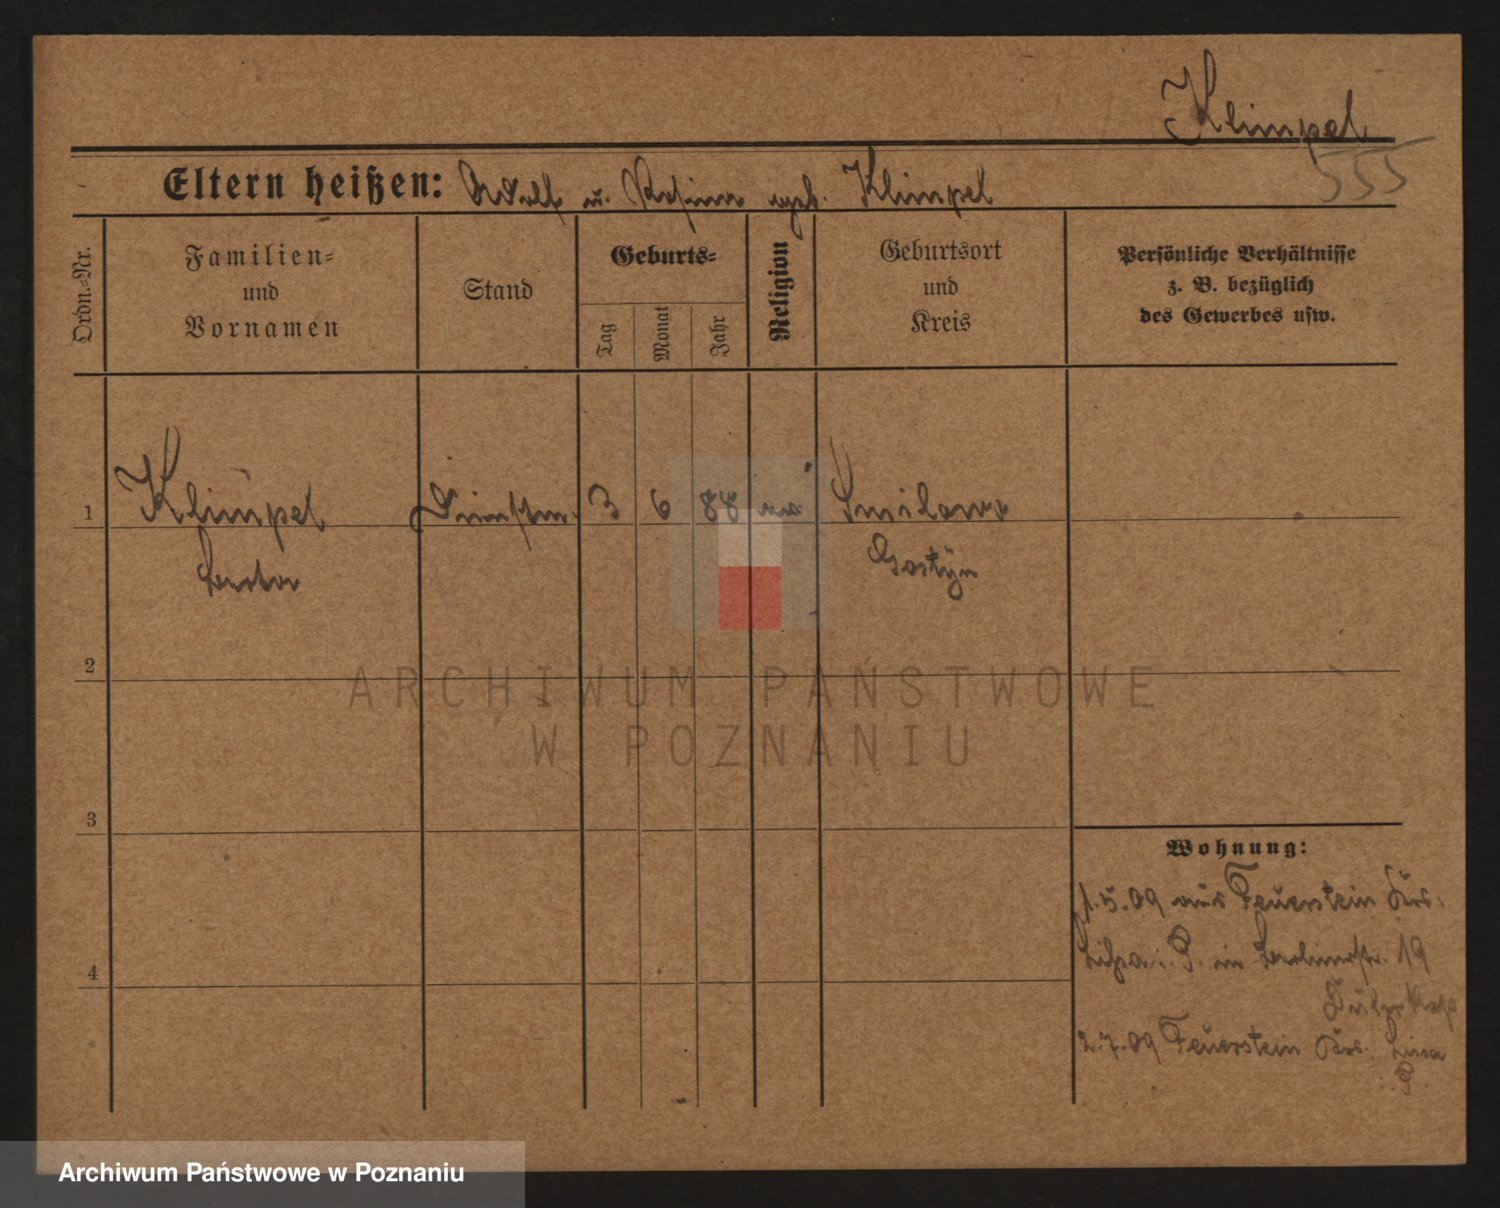 Klimpel
555
Eltern heißen: Adolf u. Rosina geb. Klimpel
Ordn.-Nr.
Familien-
und
Vornamen
Stand
Geburts-
Tag
Monat
Jahr
Religion
Geburtsort
und
Kreis
Persönliche Verhältnisse
z. B. bezüglich
des Gewerbes usw.
1
Klimpel
Berta
3
6
88
Smilowo
Gostyn
2
3
4
Wohnung:
1.5.09 aus Feuerstein Krs.
Lissa i. P. in Berlinerstr. 19
2.7.09 Feuerstein Krs. Lissa
P
ARCHIWUM PAŃSTWOWE
W POZNANIU
Archiwum Państwowe w Poznaniu